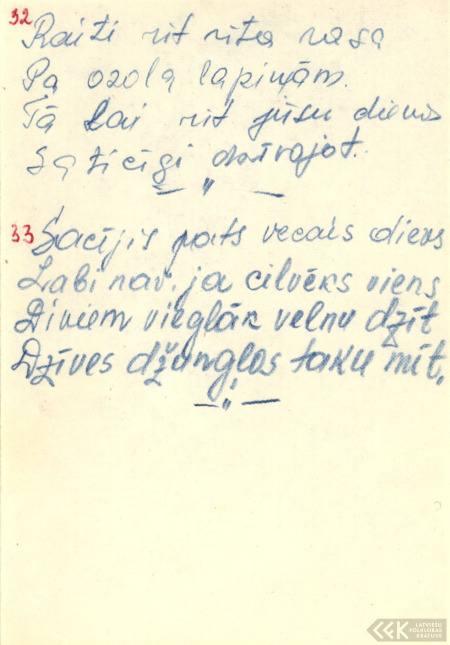 32
Raiti rit rīta rasa
Pa ozola lapiņām.
Tā lai rit jūsu diena
Saticīgi dzīvojot.
— " —
33 Sacījis pats vecais dievs
Labi nav. ja cilvēks viens
Diviem vieglāk velnu dzīt
Dzīves džungļos taku mīt.
— " —
LATVIEŠU
FOLKLORAS
KRĀTUVE